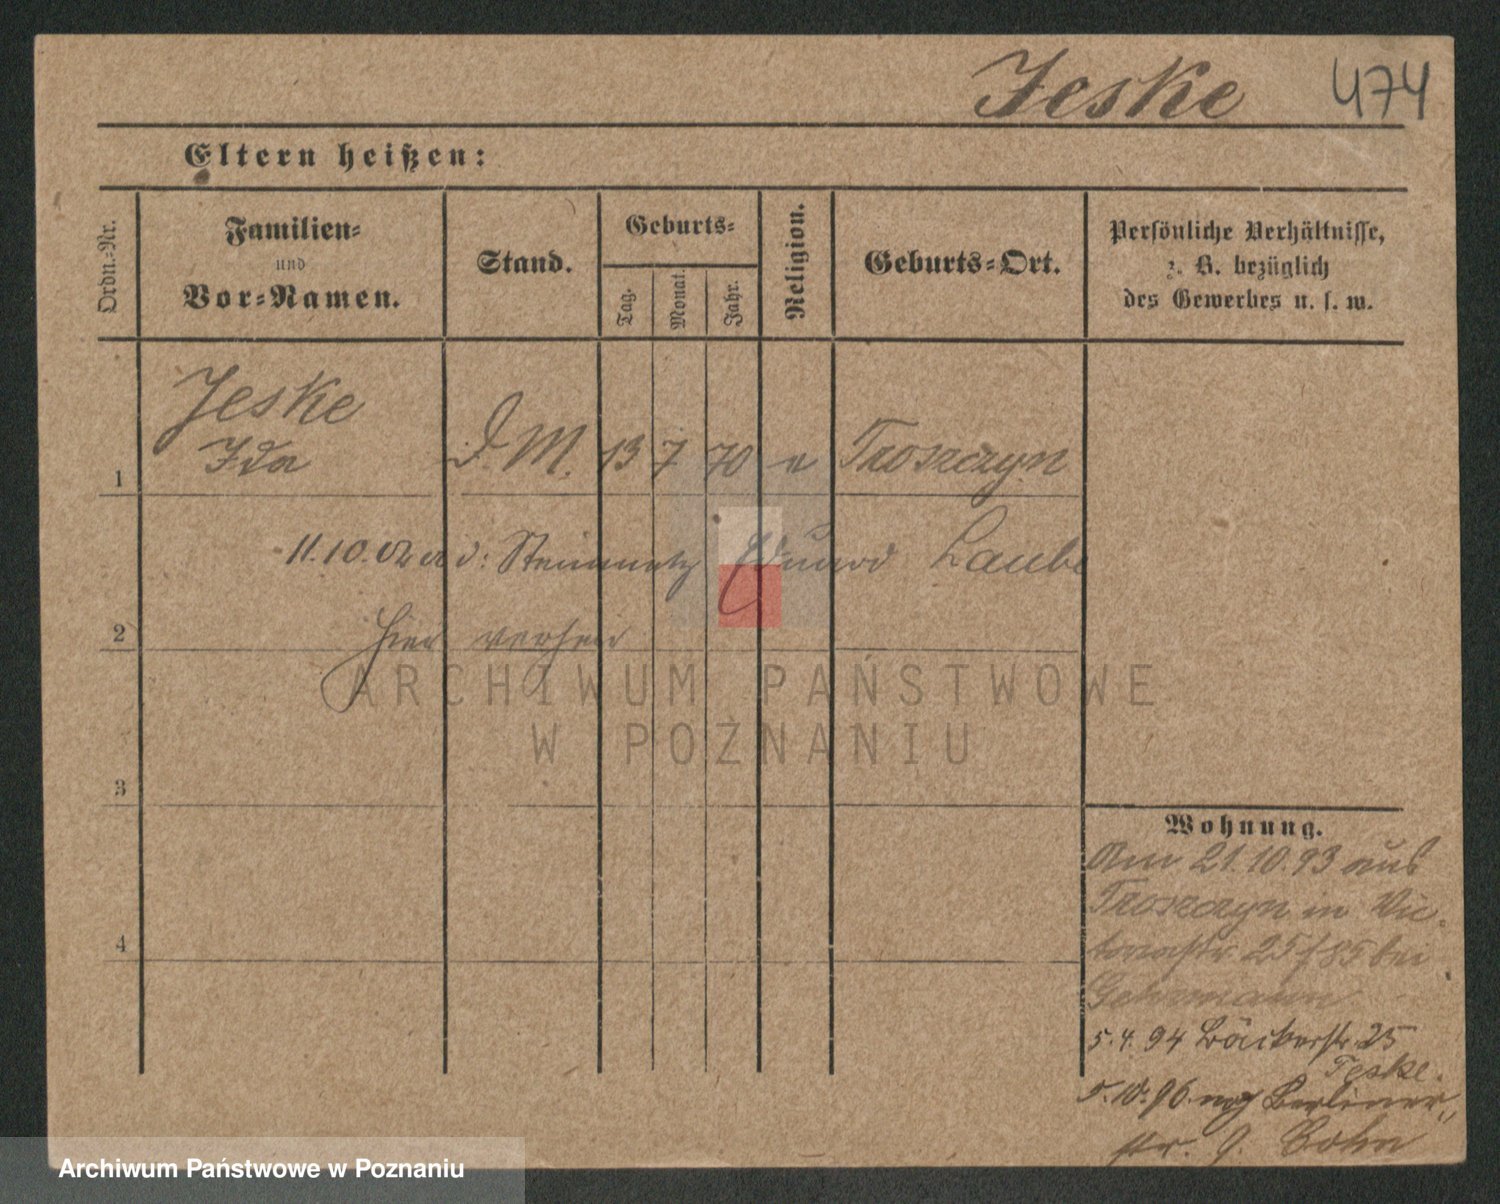 Jeske 474
Eltern heißen:
Ordn.-Nr.
Familien-
und
Vor-Namen.
Stand.
Geburts-
Tag.
Monat.
Jahr.
Religion.
Geburts-Ort.
Persönliche Verhältnisse,
z. B. bezüglich
des Gewerbes u. s. w.
Jeske
1 Ida D. M. 13 7 70 e Troszczyn
11.10.02 a d: Steinmetz Eduard Laube
2 hier verh
3
4
Wohnung.
Am 21.10.93 aus
Troszczyn in Vic-
toriastr 25 bei
Gehrmann
5.4.94 Bäckerstr. 25
Jeske.
5.10.96 Berliner
str. 9. Cohn
ARCHIWUM PAŃSTWOWE
W POZNANIU
Archiwum Państwowe w Poznaniu